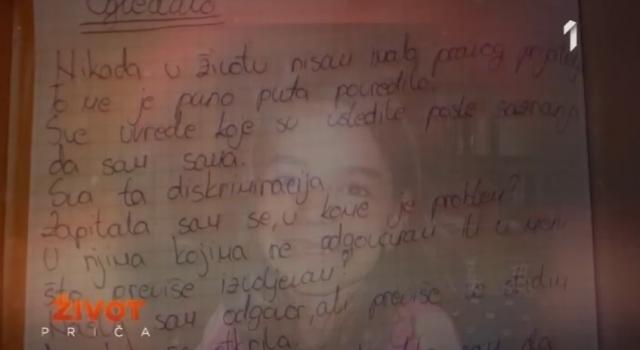 Ogledalo
1
Nikada u životu nisam imala pravog
To me je puno puta povredilo.
Sve uvrede koje su usledile posle saznanja
da sam sama.
Sva ta diskriminacija.
Zapitala sam se, u kome je problem?
U njima kojima ne odgovaram ili u meni
što previše izvdjevam?
sam odgovor, ali previše se stidim
da
ŽIVOT
PRIČA